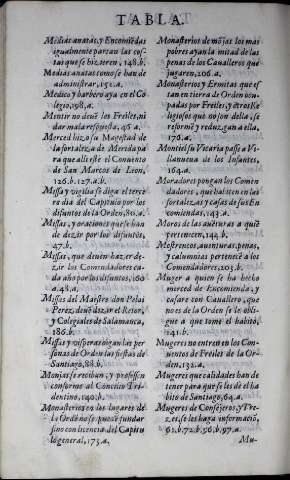 TABLA.
Medias anatas, y Encomiẽdas
igualmente partan las cos-
tas que se hizieren, 148.b.
Medias anatas como se han de
administrar, 151.a.
Medico y barbero aya en el Co
legio, 198.a.
Mentir no deuẽ los Freiles, ni
dar mala respuesta, 46.a.
Merced hizo su Magestad de
la fortaleza de Merida pa
ra que alli estè el Conuento
de San Marcos de Leon,
126.b. 127.a.b.
Missa y vigilia se diga el terce
ro dia del Capitulo por los
difuntos de la Orden, 80.a.
Missas, y oraciones que se han
de dezir por los difuntos,
47.b.
Missas, que deuen hazer de-
zir los Comendadores ca-
da año por los difuntos, 160
a. 48.a.
Missas del Maestro don Pelai
Perez, deuẽ dezir el Retor,
y Colegiales de Salamanca,
186.b.
Missas y visperas oigan las per
sonas de Orden las fiestas de
Santiago, 88.b.
Monjas se reciban, y professen
conforme al Concilio Tri-
dentino, 240.b.
Monasterios en los lugares de
la Ordẽ no se puedẽ fundar
sino con licencia del Capitu
lo general, 173.a.
Monasterios de mõjas los mas
pobres ayan la mitad de las
penas de los Caualleros que
jugaren, 206.a.
Monasterios y Ermitas que es
tan en tierra de Orden ocu-
padas por Freiles, y otros Re
ligiosos que no son della, se
reforme y reduzgan a ella,
170.a.
Montiel su Vicaria passe a Vi-
llanueua de los Infantes,
164.a.
Moradores pongan los Comen
dadores, que habiten en las
fortalezas, y casas de sus En
comiendas, 143.a.
Moros de las auenturas a quiẽ
pertenecen, 144.b.
Mostrencos, auenturas, penas,
y calumnias pertenecẽ a los
Comendadores, 205.b.
Muger a quien se ha hecho
merced de Encomienda, y
casare con Cauallero, que
no es de la Orden se le obli-
gue a que tome el habito,
141.b.
Mugeres no entren en los Con-
uentos de Freiles de la Or-
den, 132.a.
Mugeres que calidades han de
tener para que se les dè el ha
bito de Santiago, 64.a.
Mugeres de Consejeros, y Tre-
zes, se les haga informaciõ,
62.b. 72.b. 56.b. 97.a.
Mu-